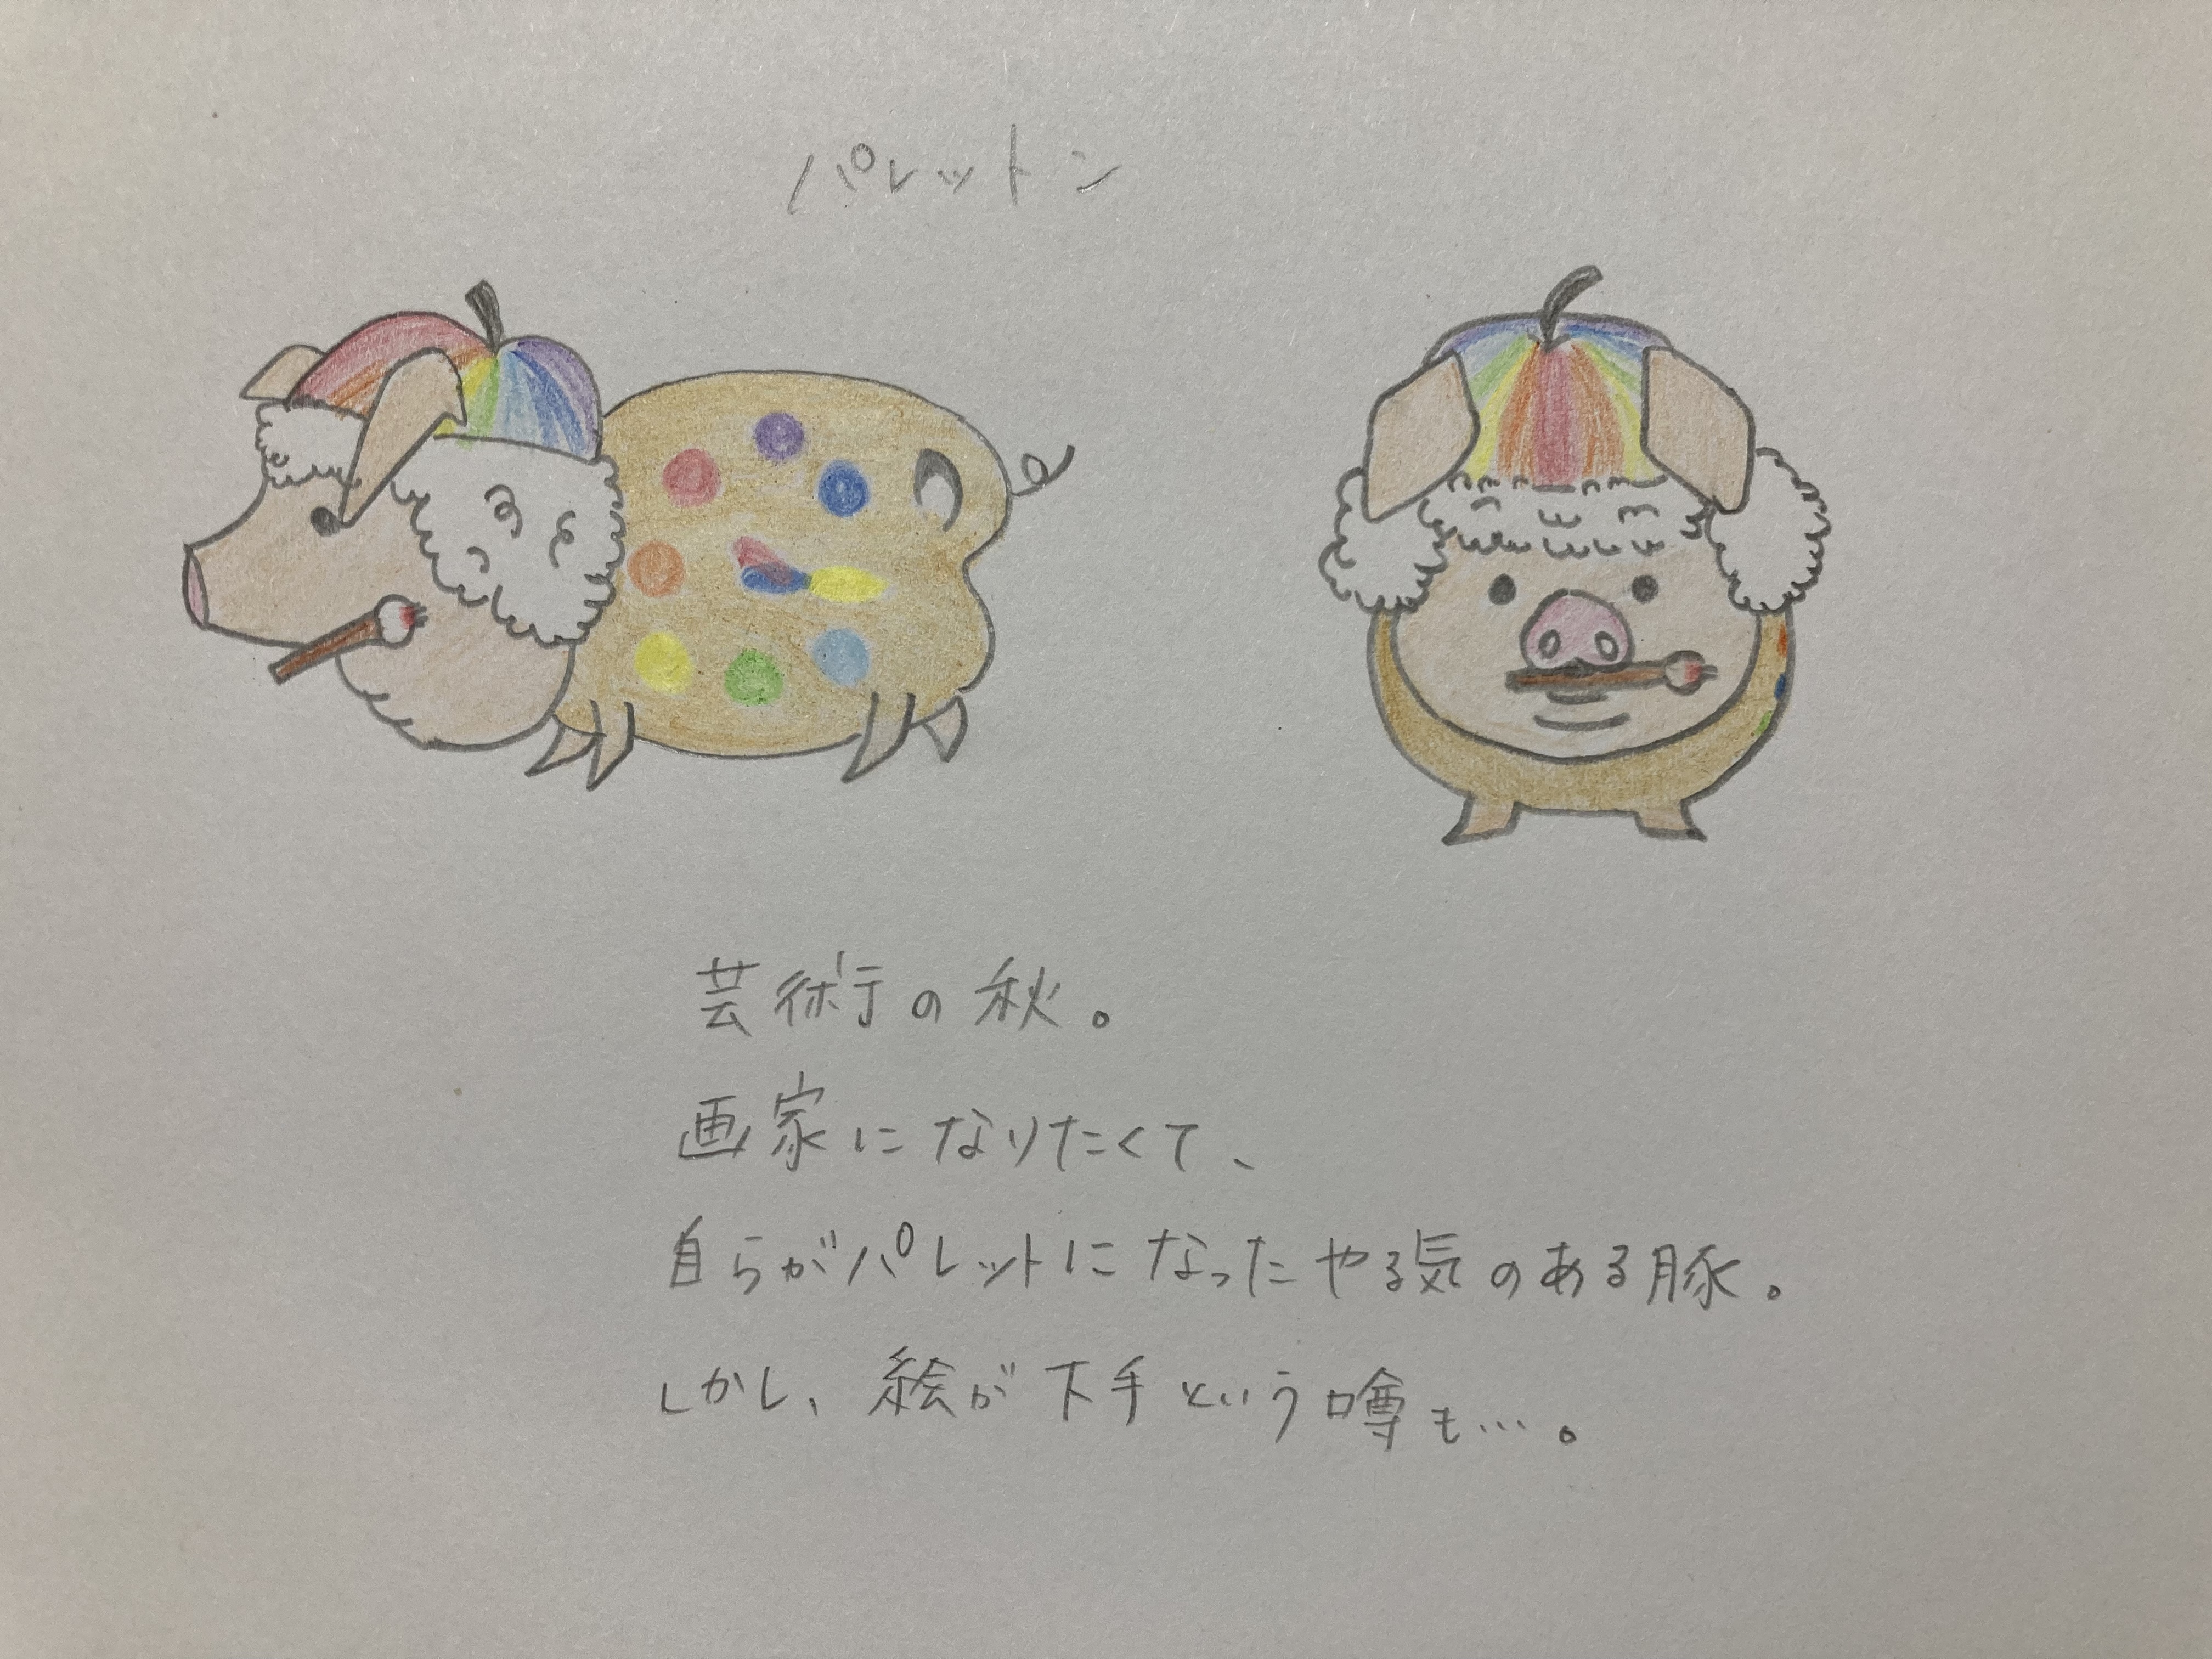 パレットン
芸術の秋。
画家になりたくて、
自らがパレットになったやる気のある豚。
しかし、絵が下手という噂も…。